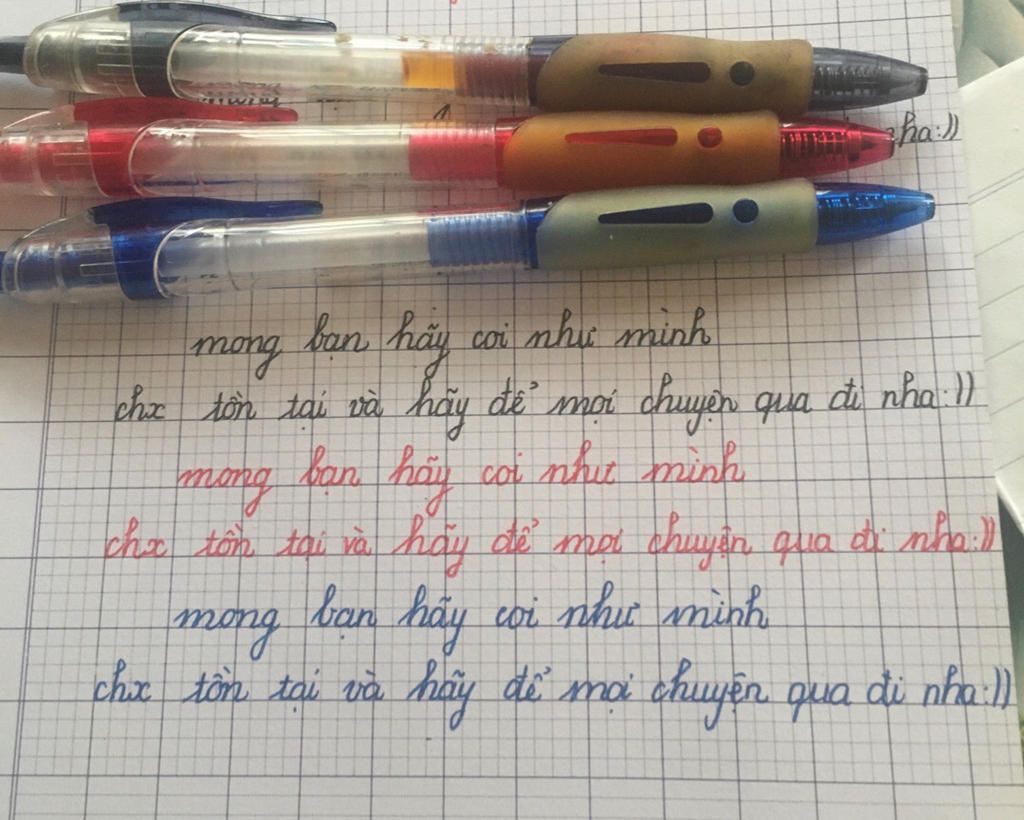 nha:))
mong bạn hãy coi như mình
chx tồn tại và hãy để mọi chuyện qua đi nha:))
mong bạn hãy coi như mình
chx tồn tại và hãy để mọi chuyện qua đi nha:))
mong bạn hãy coi như mình
chx tồn tại và hãy để mọi chuyện qua đi nha:))